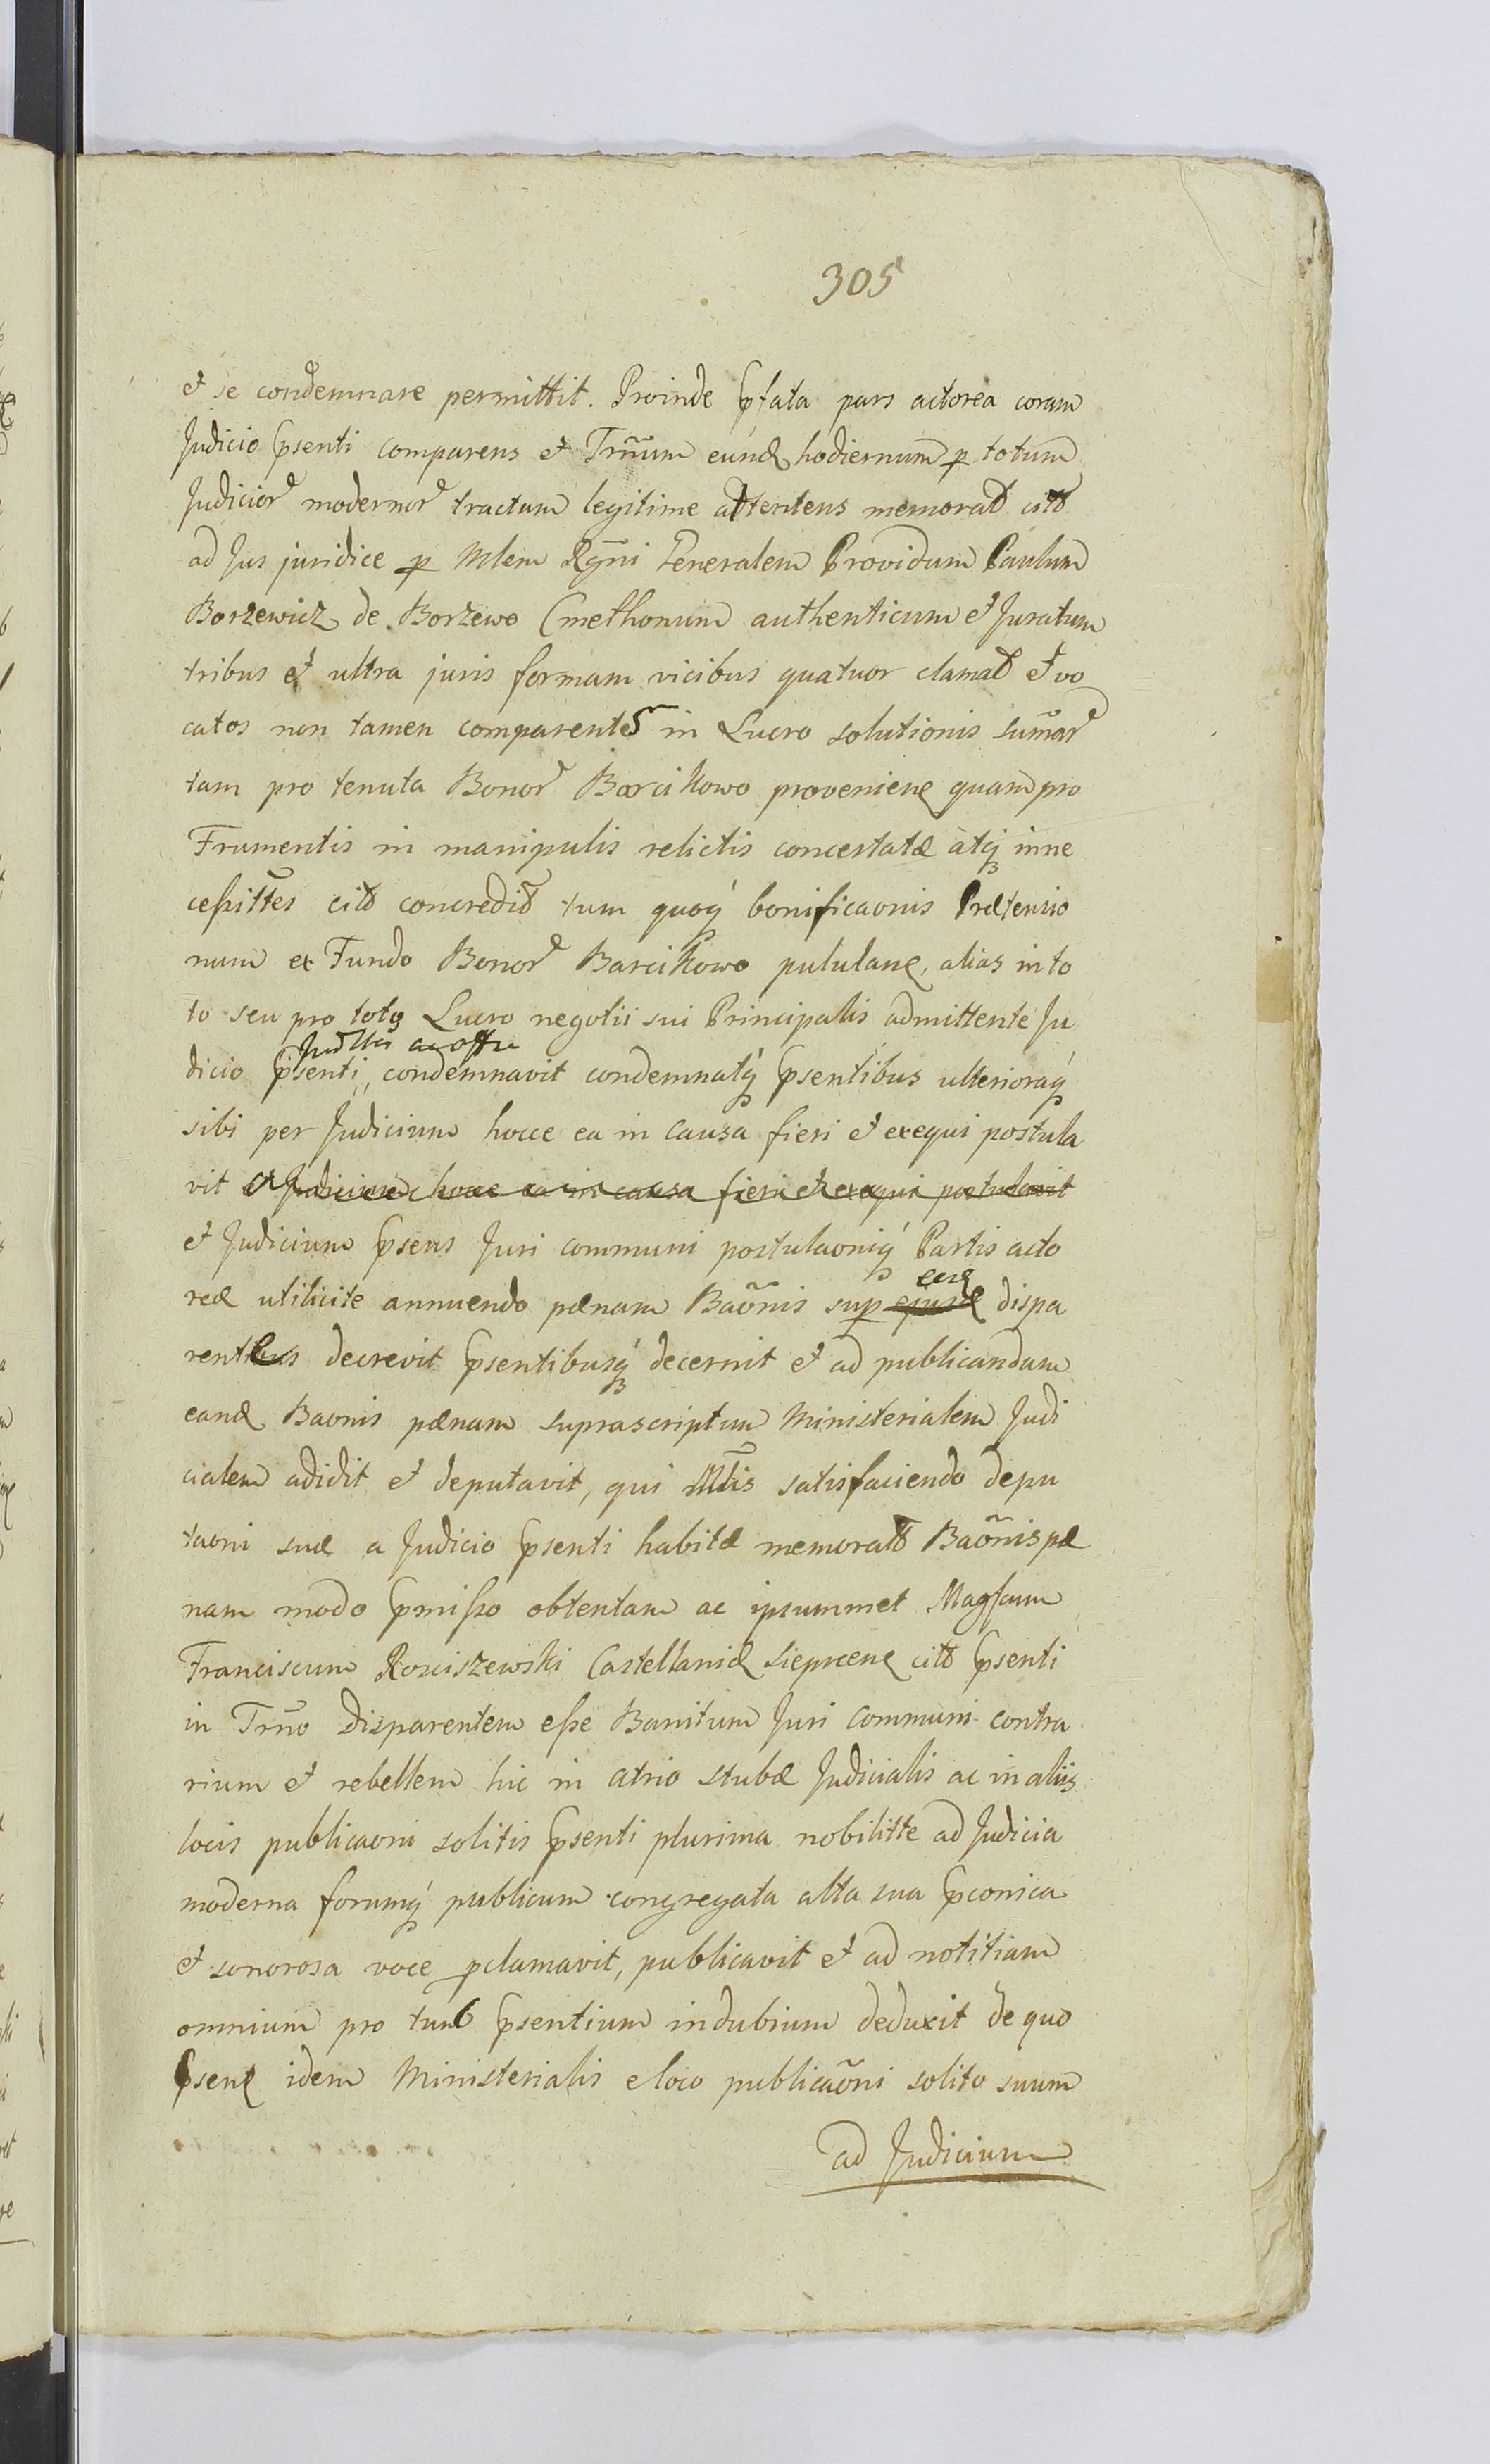 305
et se condemnare permittit. Proinde pfata pars actorea coram
Judicio psenti comparens et Trñum eund hodiernum p totum
Judicior modernor tractum legitime attentens memorat citt
ad Jus juridice p Mlem Rgñi Generalem Providum Paulum
Borzewicz de Borzewo Cmethonum authenticum et Juratum
tribus et ultra juris formam vicibus quatuor clamat et vo
catos non tamen comparentes in Lucro solutionis sum̃ar
tam pro tenuta Bonor Barcikowo provenien quam pro
Frumentis in manipulis relictis concertatæ atq in ne
cessittẽs citt concredit tum quoq bonificaonis Prætensio
num ex Fundo Bonor Barcikowo pululan, alias in to
to seu pro toto Lucro negotii sui Principalis admittente Ju
dicio psenti condemnavit condemnatq psentibus ulterioraq
sibi per Judicium hocce ea in causa fieri et exequi postula
vit et Judicium hocce ea in causa fieri et exequi postulavit
et Judicium psens Juri communi postulaoniq Partis acto
reæ utilicite annuendo pænam Baõnis sup ejusd dispa
rentes decrevit psentibusq decernit et ad publicandum
eand Baonis pænam suprascriptum Ministerialem Judi
cialem adidit et deputavit, qui Mtĩs satisfaciendo depu
taoni suæ a Judicio psenti habitæ memoratt Baõnis pæ
nam modo pmisso obtentam ac ipsummet Magfcum
Franciscum Rosciszewski Castellanid Sieprcen citt psenti
in Trño disparentem esse Banitum Juri communi contra
rium et rebellem hic in atrio stubæ Judicialis ac in aliis
locis publicaoni solitis psenti plurima nobilitte ad Judicia
moderna forumq publicum congregata alta sua pconica
et sonorosa voce pclamavit, publicavit et ad notitiam
omnium pro tunc psentium indubium deduxit de quo
psens idem Ministerialis e loco publicaõni solito suum
ad Judicium